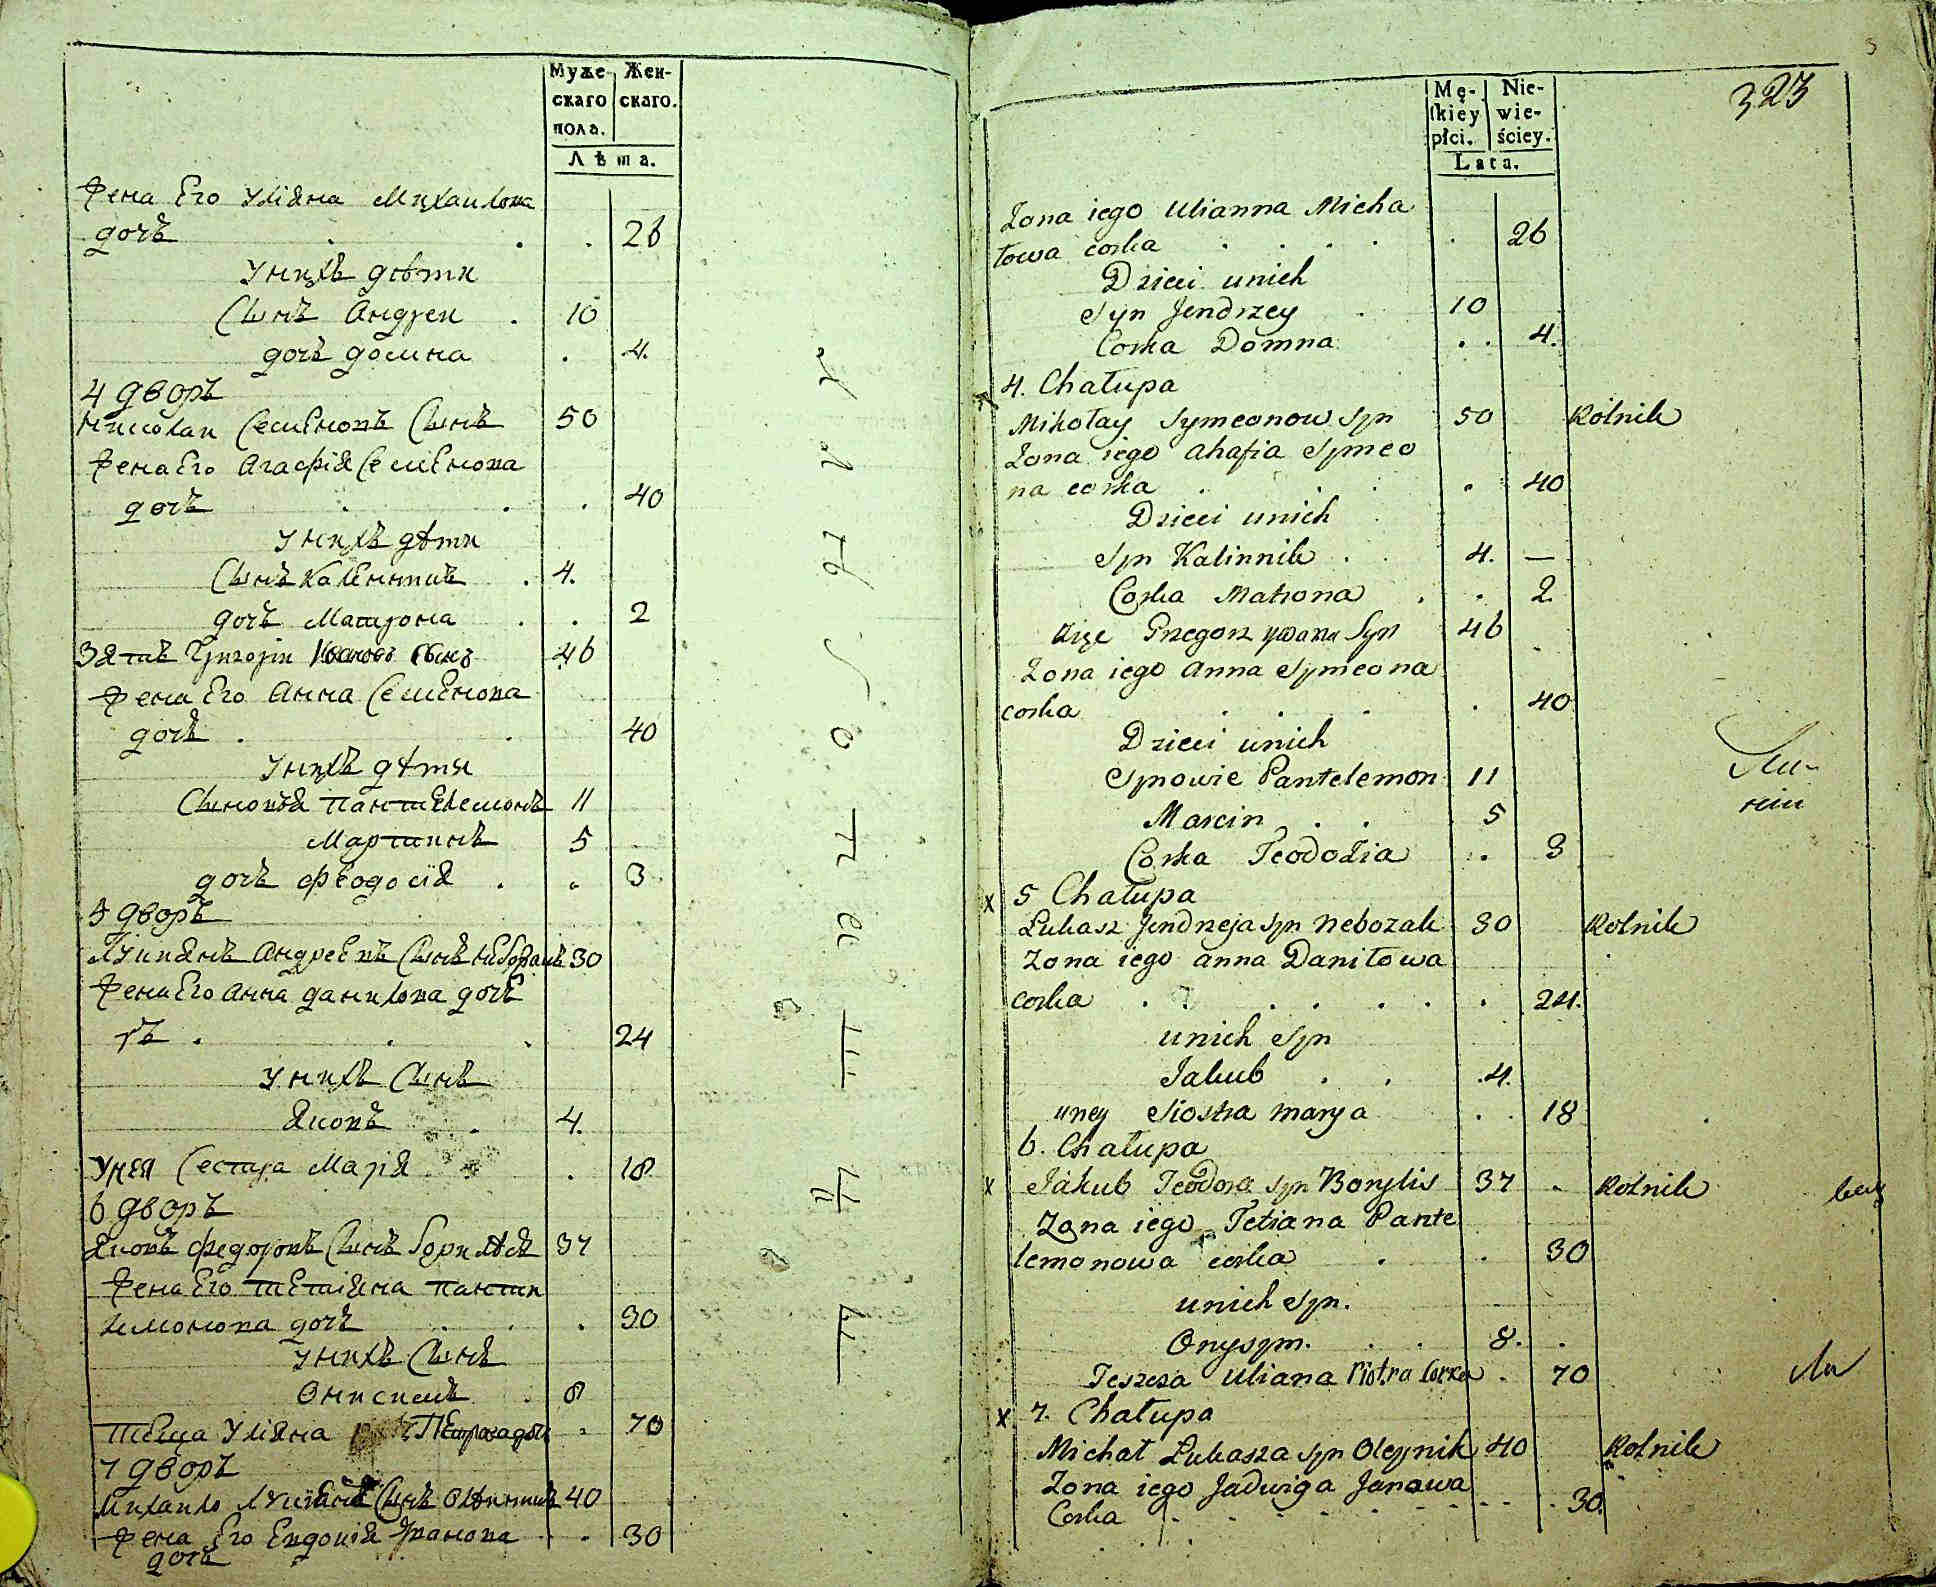 Муже-
скаго
пола.
Жен-
скаго.
Лѣта.
Жена Его Улiяна Михаилова
дочъ 26
Унихъ дѣти
Сынъ Андреи 10
дочъ домна 4.
4 дворъ
Николаи Семеновъ Сынъ 50
Жена Его Агафiя Семенова
дочъ 40
Унихъ дѣти
Сынъ Каленникъ 4.
дочъ Матрона 2
Зятъ Григорiи Ивановъ Сынъ 46
Жена Его Анна Семенова
дочъ 40
Унихъ дѣти
Сыновья пантелемонъ 11
Мартинъ 5
дочъ феодосiя 3
5 дворъ
Лукиянъ Андреевъ Сынъ Небозакъ 30
Жена Его Анна данилова доче
ръ 24
Унихъ Сынъ
Яковъ 4.
Унея Сестра Марiя 18
6 дворъ
Яковъ федоровъ Сынъ 37
Жена Его тетiяна панти
лимонова дочъ 30
Унихъ Сынъ
Онисимъ 8
теща Улiяна Петрова дочь 70
7 дворъ
Михаило Лукiяновъ Сынъ Олѣиникъ 40
Жена Его Евдокiя Иванова 30
дочъ
Л ѣ т о п и с
Mę-
skiey
płci.
Nie-
wie-
ściey.
Lata.
323
Zona iego Ulianna Micha
łowa corka 26
Dzieci unich
Syn Jendrzey 10
Corka Domna 4.
4. Chałupa
Mikołay Symeonow Syn 50 Rolnik
Zona iego Ahafia Symeo
na corka 40
Dzieci unich
Syn Kalinnik 4. —
Corka Matrona 2
Zięc Grzegorz ywana Syn 46
Zona iego Anna Symeona
corka 40
Dzieci unich
Synowie Pantelemon 11
Marcin 5
Corka Teodozia 3
x 5 Chałupa
Łukasz Jendrzeja syn Nebozak 30 Rolnik
Zona iego anna Daniłowa
corka 24.
unich Syn
Jakub 4.
uney Siostra marya 18
6. Chałupa
x Jakub Teodora syn Borylis 37 Rolnik
Zona iego Tetiana Pante
lemonowa corka 30
unich Syn.
Onysym. 8.
Teszcza Uliana Piotra Corka 70
x 7. Chałupa
Michał Łukasza syn Oleynik 40 Rolnik
Zona iego Jadwiga Janowa
Corka 30.